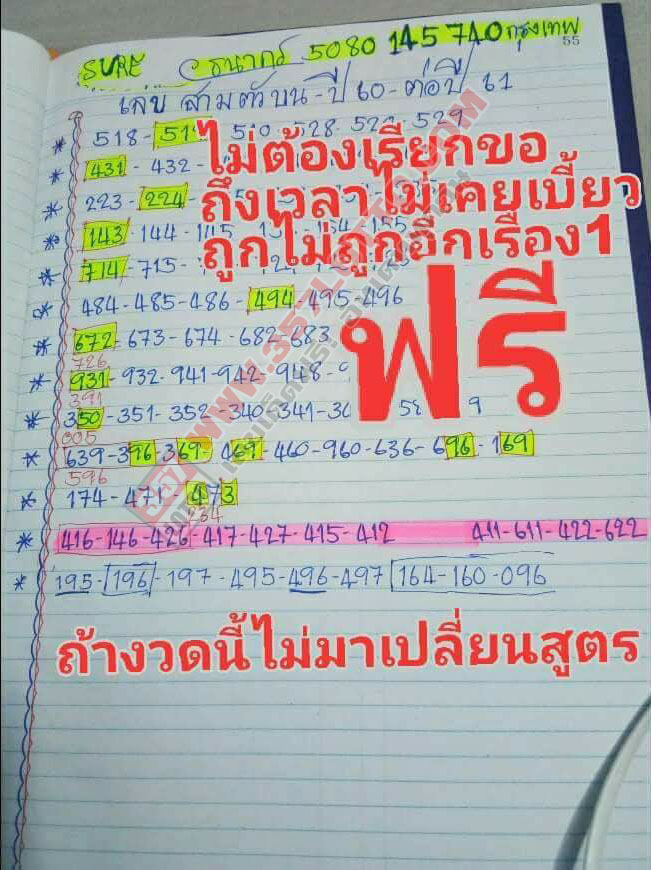 SURE ธนากร 5080 145 740 กรุงเทพ
55
เลข สามตัวบน-ปี 60-ต่อปี 61
518-519 528 529
ไม่ต้องเรียกขอ
431-432
ถึงเวลาไม่เคยเบี้ยว
223-224
143-144-145 154-155
ถูกไม่ถูกอีกเรื่อง1
714-715-
ฟรี
484-485-486-494-495-496
672-673-674-682-683
726
931-932-941-942-948-9
391
350-351-352-340-341-
005
639-396-369-469-460-960-636-696-169
596
174-471-473
234
416-146-426-417-427-415-412 411-611-422-622
195-196-197-495-496-497 164-160-096
ถ้างวดนี้ไม่มาเปลี่ยนสูตร
WWW.357LOTTO.COM